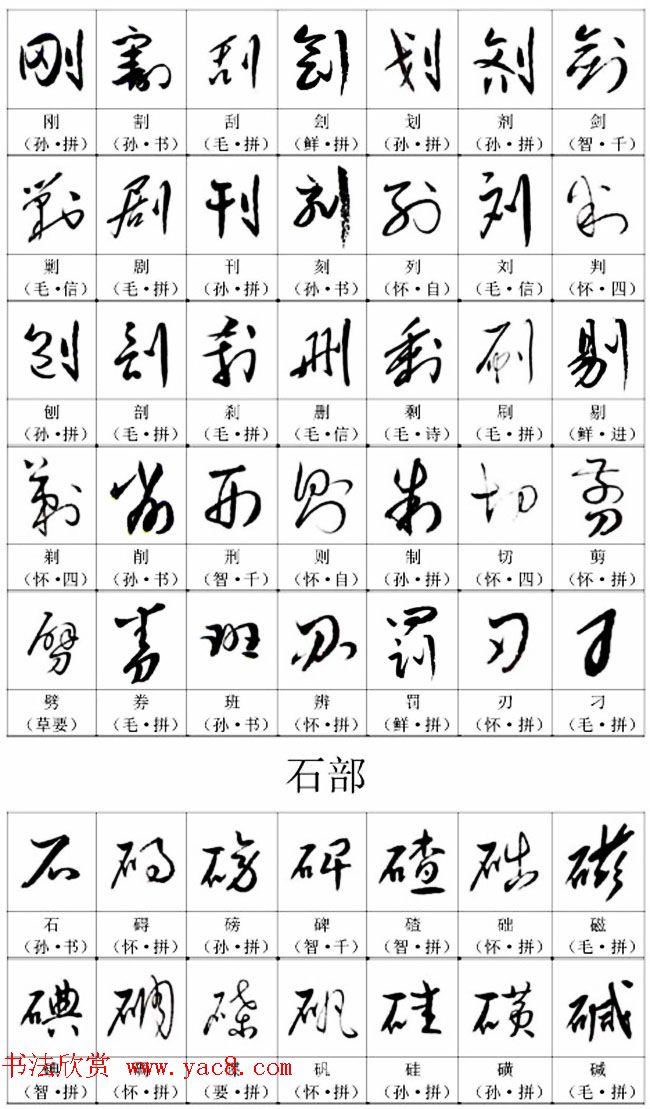 刚 割 刮 刽 划 剂 剑
（孙·拼） （孙·书） （毛·拼） （鲜·拼） （孙·拼） （孙·拼） （智·千）
剿 剧 刊 刻 列 刘 判
（毛·信） （毛·拼） （孙·拼） （孙·书） （怀·自） （毛·信） （怀·四）
刨 剖 刹 删 剩 刷 剔
（孙·拼） （毛·拼） （毛·拼） （毛·信） （毛·诗） （毛·拼） （鲜·进）
剃 削 刑 则 制 切 剪
（怀·四） （孙·书） （智·千） （怀·自） （孙·拼） （怀·四） （怀·拼）
劈 券 班 辨 罚 刃 刁
（草要） （毛·拼） （孙·书） （怀·拼） （鲜·拼） （怀·拼） （毛·拼）
石部
石 碍 磅 碑 碴 础 磁
（孙·书） （怀·拼） （孙·拼） （智·千） （智·拼） （怀·拼） （毛·拼）
书法欣赏 www.yac8.com 矾 硅 磺 碱
（智·拼） （怀·拼） （要·拼） （怀·拼） （孙·拼） （孙·拼） （毛·拼）